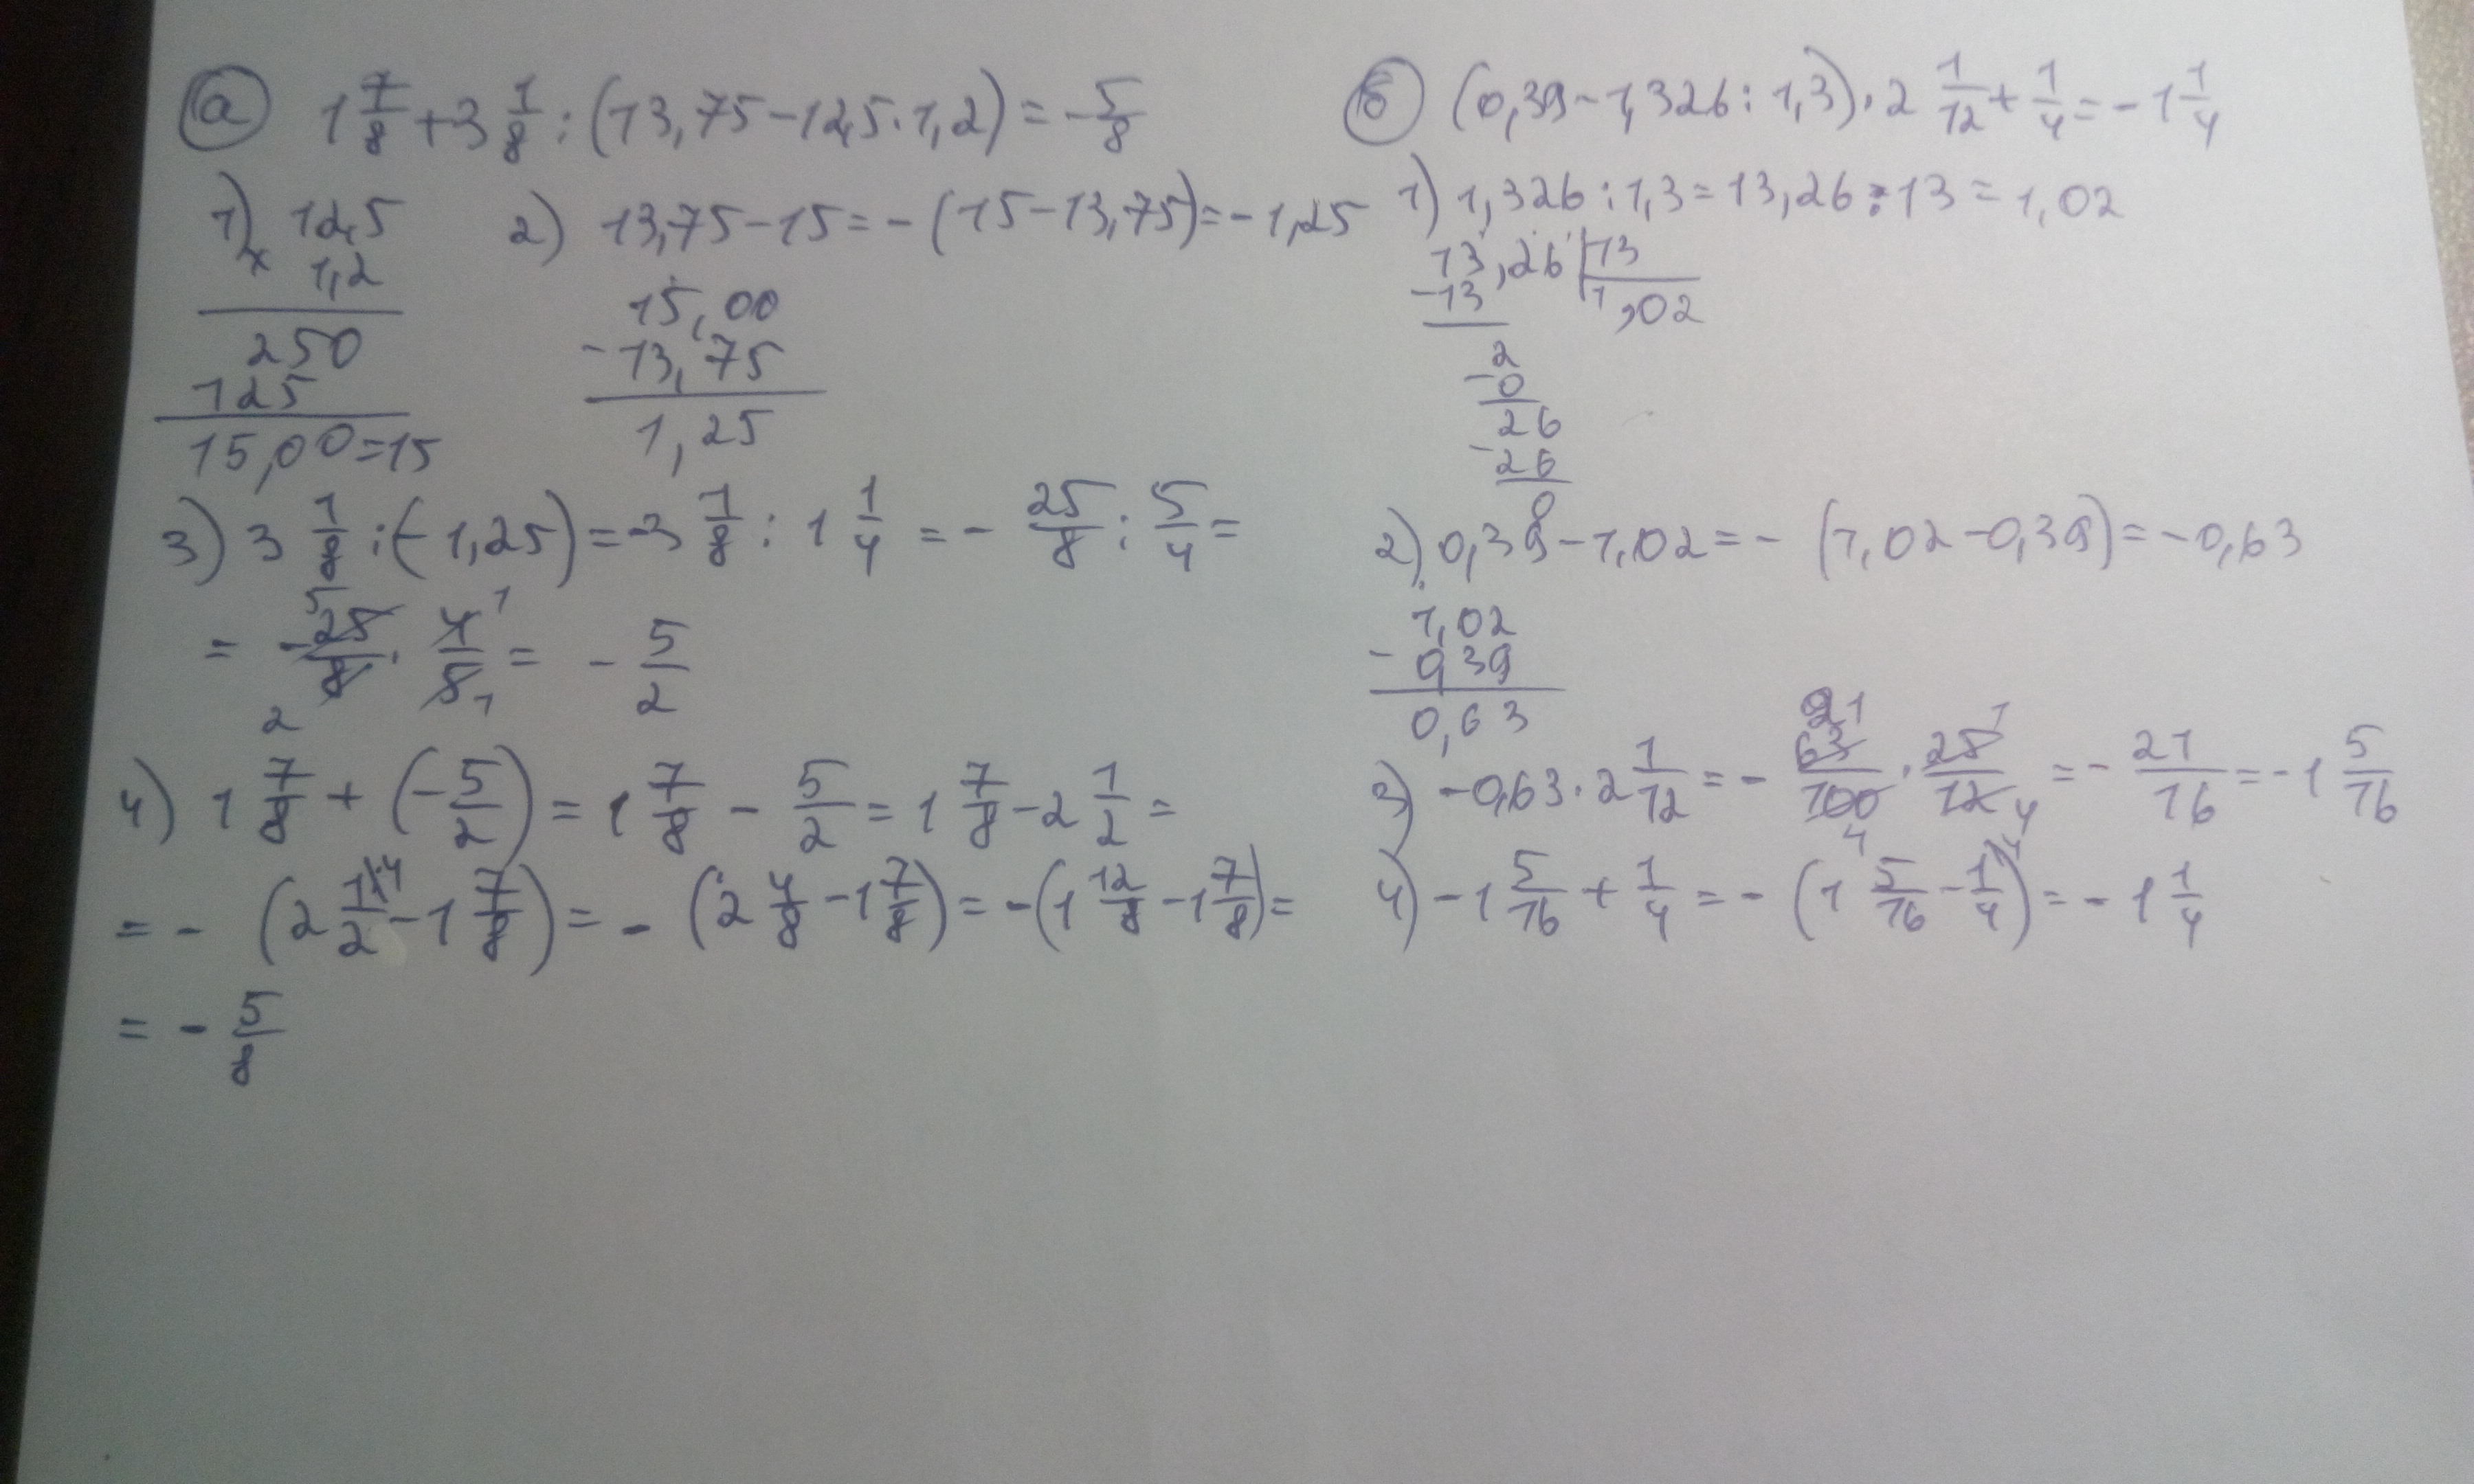 а) 1 7/8 + 3 1/8 : (13,75 - 12,5 · 1,2) = - 5/8
1) 12,5
× 1,2
250
125
15,00 = 15
2) 13,75 - 15 = - (15 - 13,75) = - 1,25
15,00
- 13,75
1,25
3) 3 1/8 : (- 1,25) = - 3 1/8 : 1 1/4 = - 25/8 : 5/4 =
= - 25/8 · 4/5 = - 5/2
5 1
2 1
4) 1 7/8 + (- 5/2) = 1 7/8 - 5/2 = 1 7/8 - 2 1/2 =
= - (2 1/2 - 1 7/8) = - (2 4/8 - 1 7/8) = - (1 12/8 - 1 7/8) =
= - 5/8
б) (0,39 - 1,326 : 1,3) · 2 1/12 + 1/4 = - 1 1/4
1) 1,326 : 1,3 = 13,26 : 13 = 1,02
13,26 | 13
- 13 1,02
2
- 0
26
- 26
0
2) 0,39 - 1,02 = - (1,02 - 0,39) = - 0,63
1,02
- 0,39
0,63
3) - 0,63 · 2 1/12 = - 63/100 · 25/12 = - 21/16 = - 1 5/16
21 1
4 4
4) - 1 5/16 + 1/4 = - (1 5/16 - 1/4) = - 1 1/4